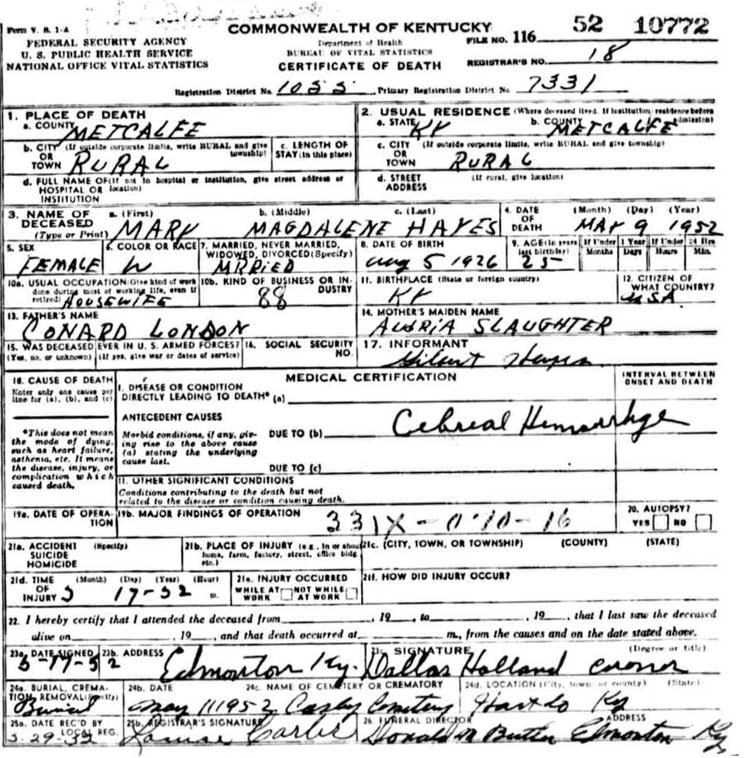 Form V. S. 1-A
COMMONWEALTH OF KENTUCKY
52 10772
FEDERAL SECURITY AGENCY
Department of Health
FILE NO. 116
U. S. PUBLIC HEALTH SERVICE
BUREAU OF VITAL STATISTICS
NATIONAL OFFICE VITAL STATISTICS
CERTIFICATE OF DEATH
REGISTRAR'S NO. 18
Registration District No. 1055 Primary Registration District No. 7331
1. PLACE OF DEATH
2. USUAL RESIDENCE (Where deceased lived. If institution: residence before admission)
a. COUNTY METCALFE
a. STATE KY b. COUNTY METCALFE
b. CITY (If outside corporate limits, write RURAL and give township) OR TOWN RURAL
c. LENGTH OF STAY (in this place)
c. CITY (If outside corporate limits, write RURAL and give township) OR TOWN RURAL
d. FULL NAME OF (If not in hospital or institution, give street address or location) HOSPITAL OR INSTITUTION
d. STREET ADDRESS (If rural, give location)
3. NAME OF DECEASED (Type or Print)
a. (First) MARY b. (Middle) MAGDALENE c. (Last) HAYES
4. DATE OF DEATH (Month) (Day) (Year) MAY 9 1952
5. SEX FEMALE
6. COLOR OR RACE W
7. MARRIED, NEVER MARRIED, WIDOWED, DIVORCED (Specify) MRRIED
8. DATE OF BIRTH Aug 5 1926
9. AGE (In years last birthday) 25
If Under 1 Year Months Days
If Under 24 Hrs Hours Min.
10a. USUAL OCCUPATION (Give kind of work done during most of working life, even if retired) HOUSEWIFE
10b. KIND OF BUSINESS OR INDUSTRY 88
11. BIRTHPLACE (State or foreign country) KY
12. CITIZEN OF WHAT COUNTRY? USA
13. FATHER'S NAME CONARD LONDON
14. MOTHER'S MAIDEN NAME SLAUGHTER
15. WAS DECEASED EVER IN U. S. ARMED FORCES? (Yes, no, or unknown) (If yes, give war or dates of service)
16. SOCIAL SECURITY NO.
17. INFORMANT Hilbert Hayes
18. CAUSE OF DEATH
Enter only one cause per line for (a), (b), and (c)
MEDICAL CERTIFICATION
INTERVAL BETWEEN ONSET AND DEATH
I. DISEASE OR CONDITION DIRECTLY LEADING TO DEATH* (a)
*This does not mean the mode of dying, such as heart failure, asthenia, etc. It means the disease, injury, or complication which caused death.
ANTECEDENT CAUSES
Morbid conditions, if any, giving rise to the above cause (a) stating the underlying cause last.
DUE TO (b) Cebreal Hemorrhge
DUE TO (c)
II. OTHER SIGNIFICANT CONDITIONS
Conditions contributing to the death but not related to the disease or condition causing death.
19a. DATE OF OPERATION
19b. MAJOR FINDINGS OF OPERATION 331X
20. AUTOPSY? YES NO
21a. ACCIDENT SUICIDE HOMICIDE (Specify)
21b. PLACE OF INJURY (e.g., in or about home, farm, factory, street, office bldg. etc.)
21c. (CITY, TOWN, OR TOWNSHIP) (COUNTY) (STATE)
21d. TIME OF INJURY (Month) (Day) (Year) (Hour) 5 17-52 m.
21e. INJURY OCCURRED WHILE AT WORK NOT WHILE AT WORK
21f. HOW DID INJURY OCCUR?
22. I hereby certify that I attended the deceased from , 19 , to , 19 , that I last saw the deceased
alive on , 19 , and that death occurred at m., from the causes and on the date stated above.
23a. DATE SIGNED 5-17-52
23b. ADDRESS Edmonton Ky.
23c. SIGNATURE (Degree or title) Dallas Holland coroner
24a. BURIAL, CREMATION, REMOVAL (Specify) Buriel
24b. DATE May 11 1952
24c. NAME OF CEMETERY OR CREMATORY Casby Cemetery
24d. LOCATION (City, town, or county) (State) Ky
25a. DATE REC'D BY LOCAL REG. 5-29-52
25b. REGISTRAR'S SIGNATURE Louise Carter
26. FUNERAL DIRECTOR ADDRESS Donald M Butler Edmonton Ky